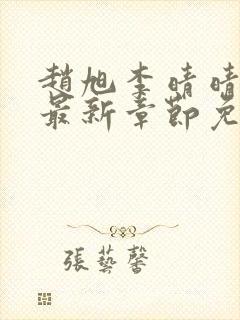 趙旭李晴晴
最新章節免
張藝馨